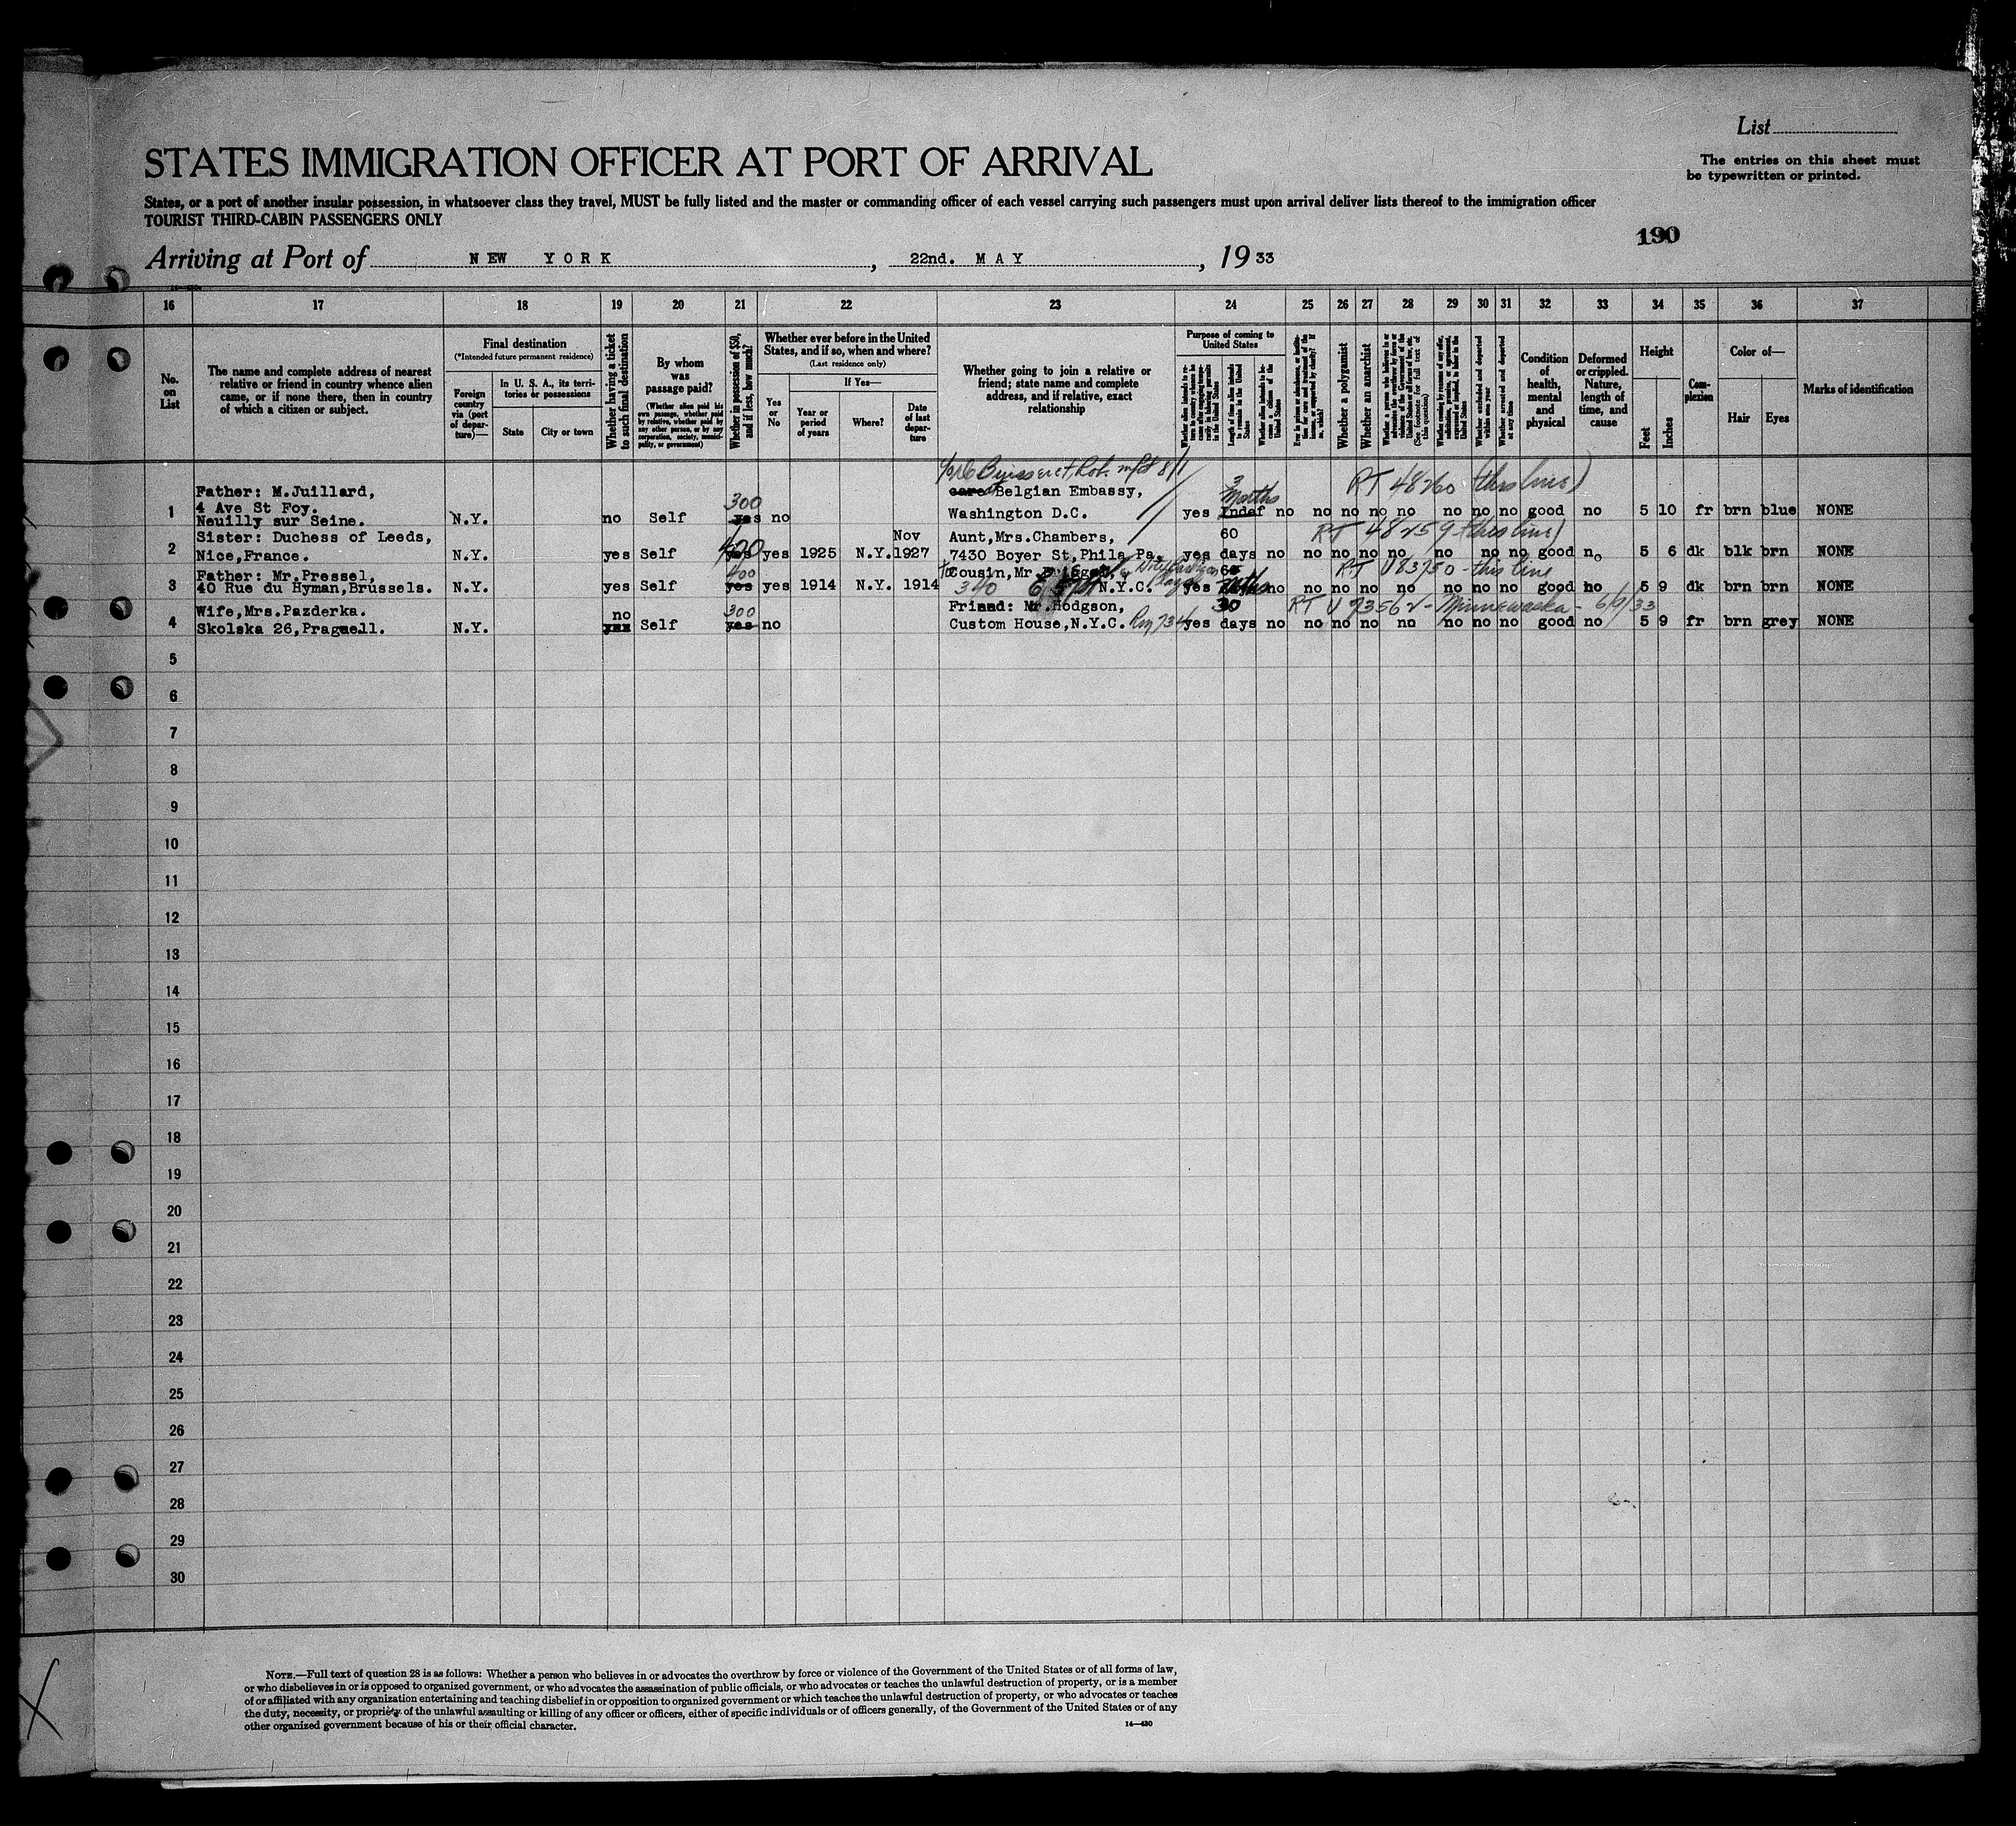 List
STATES IMMIGRATION OFFICER AT PORT OF ARRIVAL
The entries on this sheet must
be typewritten or printed.
States, or a port of another insular possession, in whatsoever class they travel, MUST be fully listed and the master or commanding officer of each vessel carrying such passengers must upon arrival deliver lists thereof to the immigration officer
TOURIST THIRD-CABIN PASSENGERS ONLY
190
Arriving at Port of NEW YORK, 22nd. MAY, 1933
16 17 18 19 20 21 22 23 24 25 26 27 28 29 30 31 32 33 34 35 36 37
No.
on
List
The name and complete address of nearest
relative or friend in country whence alien
came, or if none there, then in country
of which a citizen or subject.
Final destination
(*Intended future permanent residence)
Foreign
country
via (port
of depar-
ture)—
In U. S. A., its terri-
tories or possessions
State
City or town
Whether having a ticket
to such final destination
By whom
was
passage paid?
(Whether alien paid his
own passage, whether paid
by relative, whether paid by
any other person, or by any
corporation, society, munici-
pality, or government)
Whether in possession of $50,
and if less, how much?
Whether ever before in the United
States, and if so, when and where?
(Last residence only)
Yes
or
No
If Yes—
Year or
period
of years
Where?
Date
of last
depar-
ture
Whether going to join a relative or
friend; state name and complete
address, and if relative, exact
relationship
Purpose of coming to
United States
Length of time alien intends
to remain in the United
States
Whether alien intends to be-
come a citizen of the
United States
Whether a polygamist
Whether an anarchist
(See footnote for full text of
this question)
Whether excluded and deported
within one year
Whether arrested and deported
at any time
Condition
of
health,
mental
and
physical
Deformed
or crippled.
Nature,
length of
time, and
cause
Height
Feet
Inches
Com-
plexion
Color of—
Hair
Eyes
Marks of identification
RT 48260 (this line)
Father: M.Juillard,
4 Ave St Foy.
300
Belgian Embassy,
3
Months
1 Neuilly sur Seine. N.Y. no Self yes no Washington D.C. yes Indef no no no no no no no no good no 5 10 fr brn blue NONE
Sister: Duchess of Leeds, Nov Aunt,Mrs.Chambers, 60 RT 48259-this line)
2 Nice,France. N.Y. yes Self 400 yes yes 1925 N.Y. 1927 7430 Boyer St,Phila Pa. yes days no no no no no no no no good no 5 6 dk blk brn NONE
Father: Mr.Pressel, 400 Cousin,Mr RT V83750-this line
3 40 Rue du Hyman,Brussels. N.Y. yes Self yes yes 1914 N.Y. 1914 340 N.Y.C. yes no no no no no no no no good no 5 9 dk brn brn NONE
Wife,Mrs.Pazderka. no 300 Friend: Mr.Hodgson, 30 RT V 93562-Minnewaska-6/9/33
4 Skolska 26,Prague.ll. N.Y. Self yes no Custom House,N.Y.C. Rm 734 yes days no no no no no no no no good no 5 9 fr brn grey NONE
5
6
7
8
9
10
11
12
13
14
15
16
17
18
19
20
21
22
23
24
25
26
27
28
29
30
NOTE.—Full text of question 28 is as follows: Whether a person who believes in or advocates the overthrow by force or violence of the Government of the United States or of all forms of law,
or who disbelieves in or is opposed to organized government, or who advocates the assassination of public officials, or who advocates or teaches the unlawful destruction of property, or is a member
of or affiliated with any organization entertaining and teaching disbelief in or opposition to organized government or which teaches the unlawful destruction of property, or who advocates or teaches
the duty, necessity, or propriety of the unlawful assaulting or killing of any officer or officers, either of specific individuals or of officers generally, of the Government of the United States or of any
other organized government because of his or their official character.
14—430